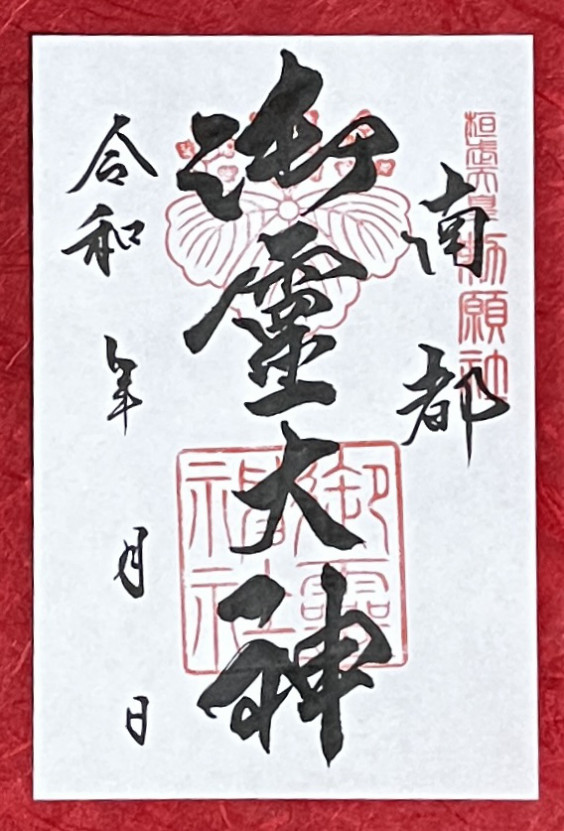 桓武天皇勅願社
南都
御靈大神
御靈神社
令和 年 月 日